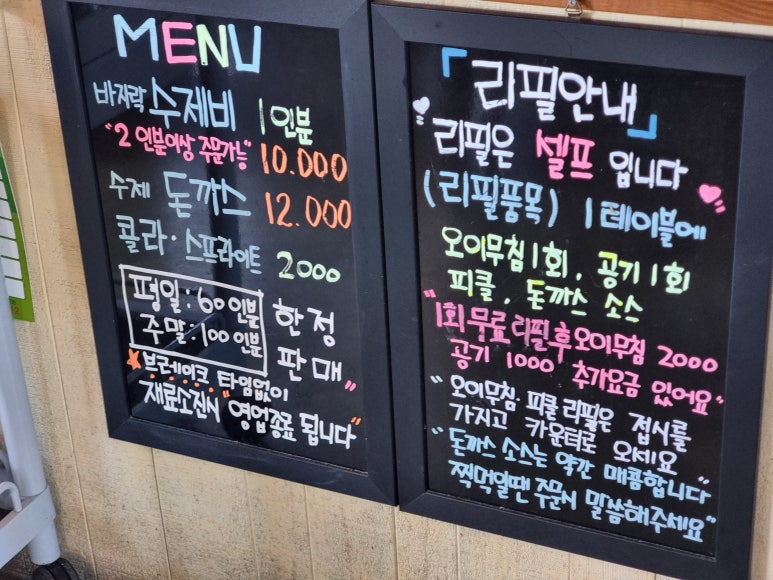 MENU
바지락 수제비 1인분
"2인분이상 주문가능" 10.000
수제 돈까스 12.000
콜라·스프라이트 2000
평일:60인분 한정
주말:100인분 판매"
★브레이크 타임없이
재료소진시 "영업종료 됩니다"
「리필안내」
리필은 셀프 입니다
(리필품목) 1테이블에
오이무침1회, 공기1회
피클, 돈까스 소스
"1회 무료 리필 후 오이무침 2000
공기 1000 추가요금 있어요"
"오이무침 피클 리필은 접시를
가지고 카운터로 오세요"
"돈까스 소스는 약간 매콤합니다
찍먹일땐 주문시 말씀해주세요"